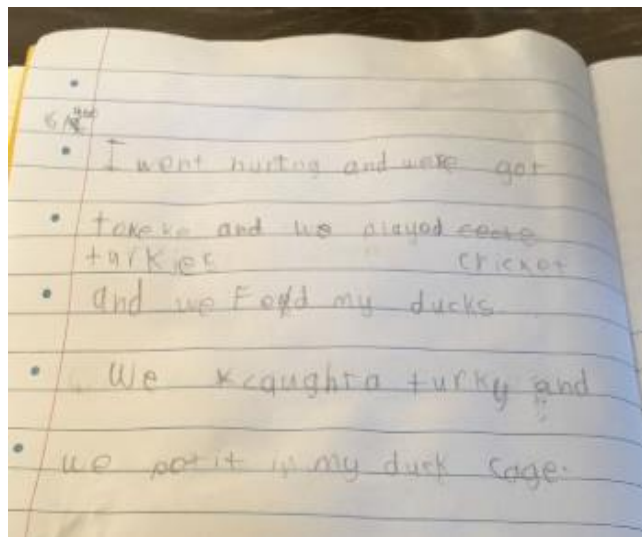 I went hurtng and were got
tokeke and we played
turkies cricket
and we Fed my ducks
We caught a turky and
we potit in my duck cage.